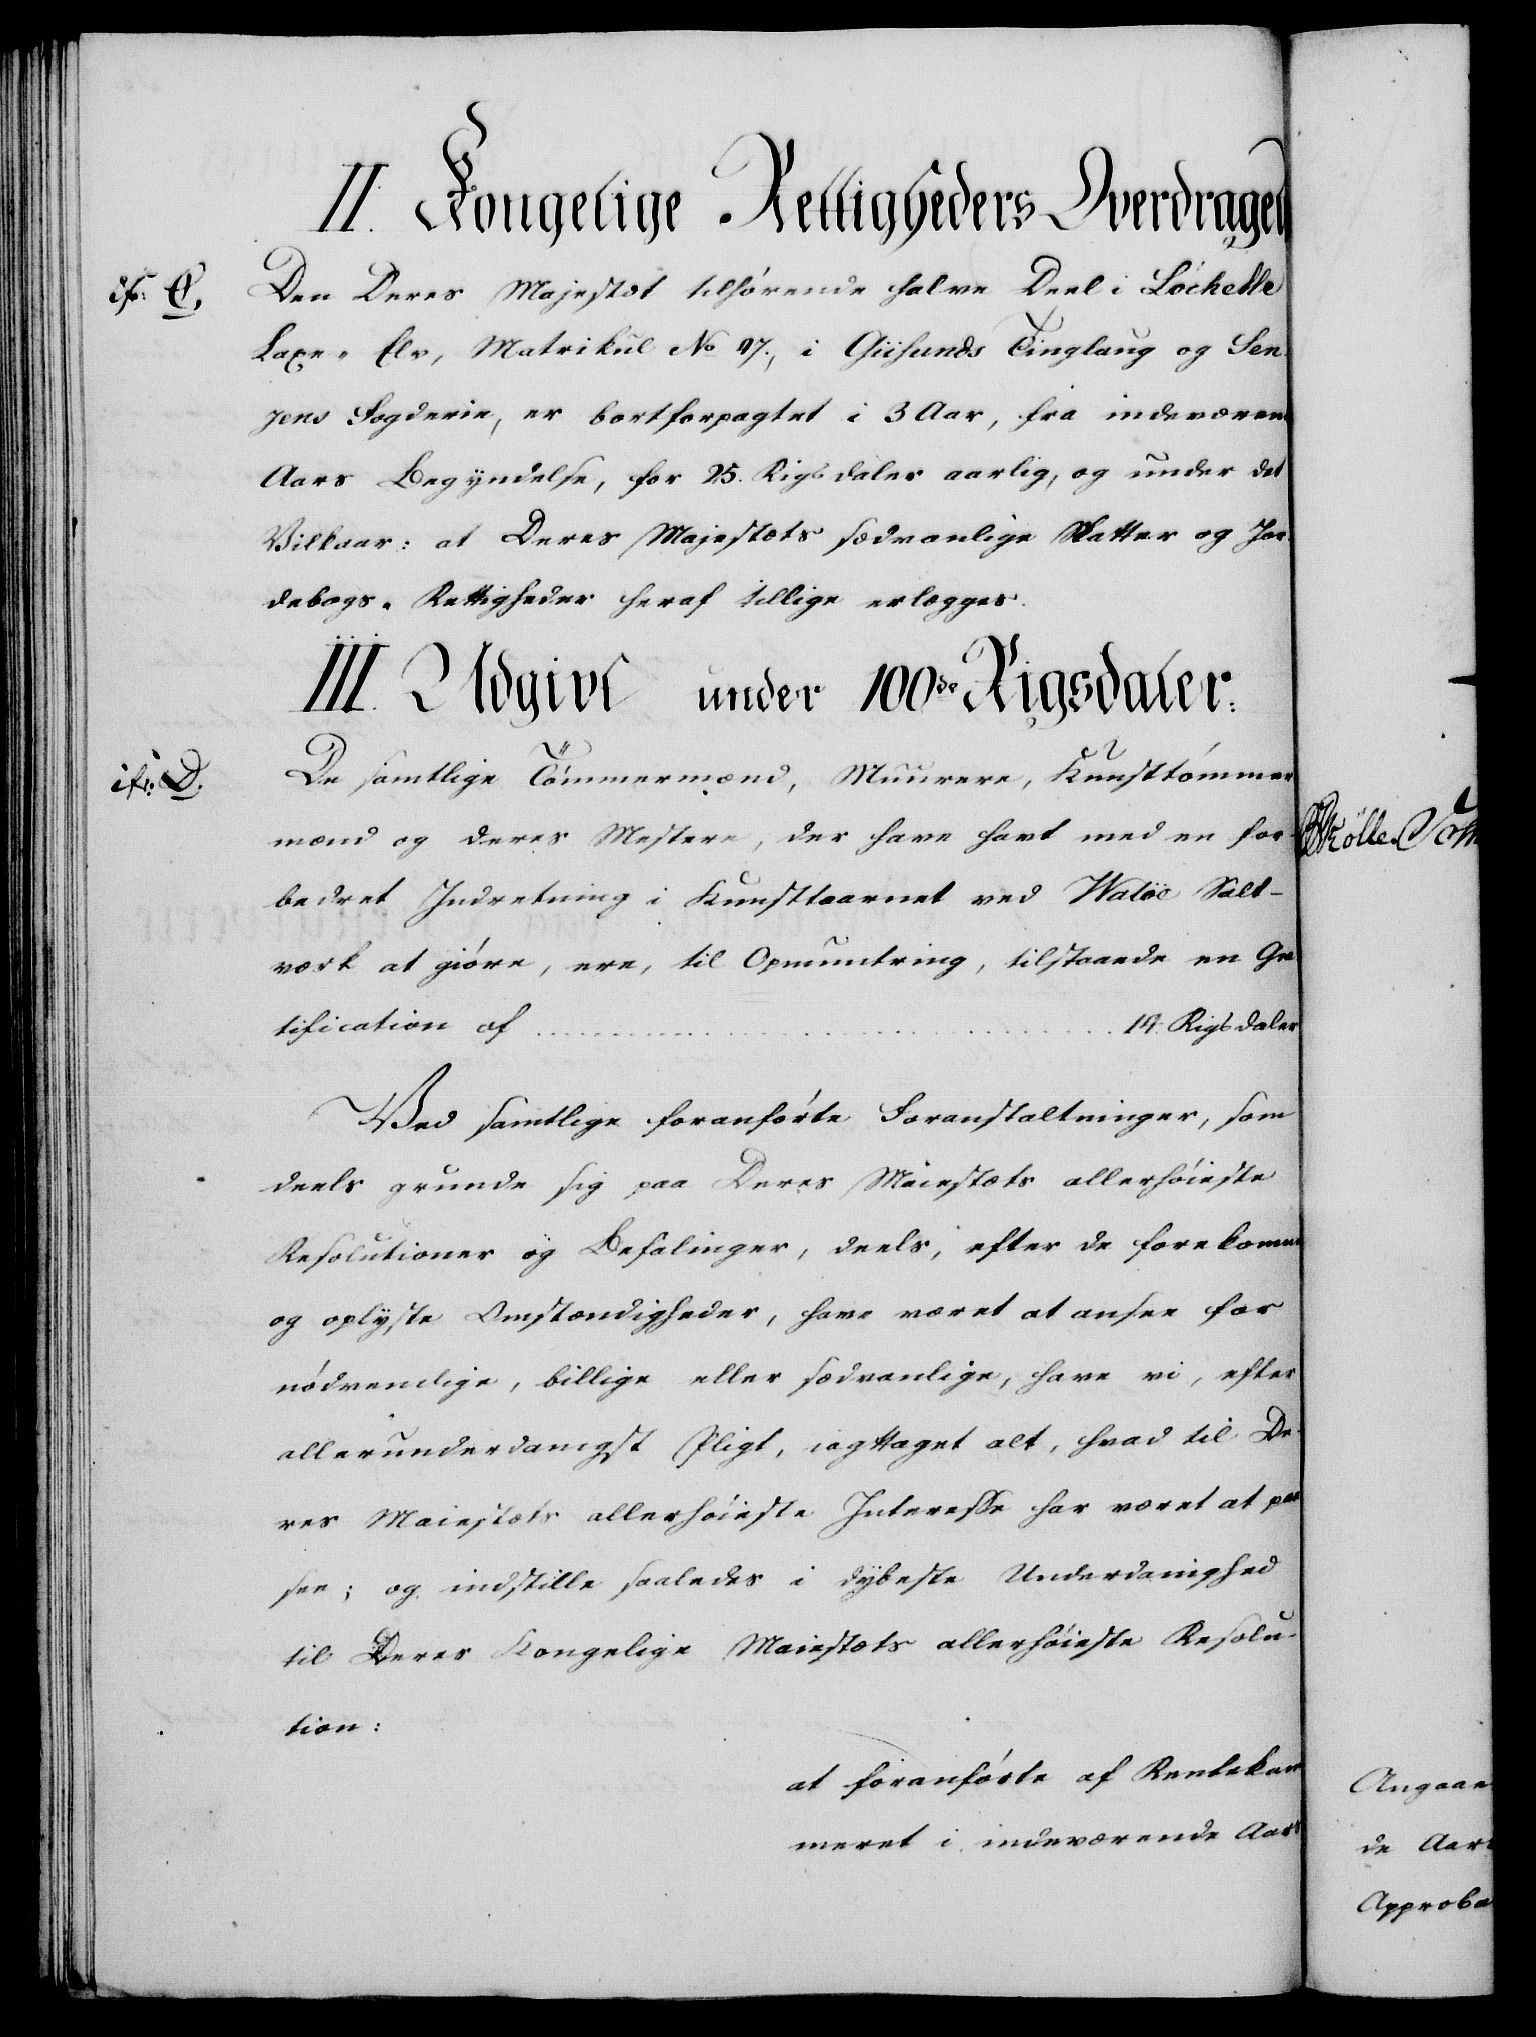 II. Kongelige Rettigheders Overdragel
cfr: C. Den Deres Majestæt tilhørende halve Deel i Löchelle
Laxe- Elv, Matrikul No 97., i Giisunds Tinglaug og Sen-
jens Fogderie, er bortforpagtet i 3 Aar, fra indeværen
Aars Begyndelse, for 25. Rigsdaler aarlig, og under det
Vilkaar: at Deres Majestæts sædvanlige Skatter og Jor-
debogs- Rettigheder heraf tillige erlægges.
III. Udgivt under 100de Rigsdaler.
cfr: D. De samtlige Tömmermænd, Muurere, Kunsttömmer
mænd og deres Mestere, der have havt med en for-
bedret Indretning i Kunsttaarnet ved Waløe Salt-
værk at giöre, ere, til Opmuntring, tilstaaede en Gra
tification af ... 14 Rigsdaler
Ved samtlige foranförte Foranstaltninger, som
deels grunde sig paa Deres Maiestæts allerhöieste
Resolutioner og Befalinger, deels, efter de forekomne
og oplyste Omstændigheder, have været at ansee for
nödvendige, billige eller sædvanlige, have vi, efter
allerunderdanigst Pligt, iagttaget alt, hvad til De-
res Maiestæts allerhöieste Interesse har været at paa
see; og indstille saaledes i dybeste Underdanighed
til Deres Kongelige Maiestæts allerhöieste Resolu-
tion:
at foranförte af Rentekam
meret i indeværende Aars
Angaae
de Aar
Approba